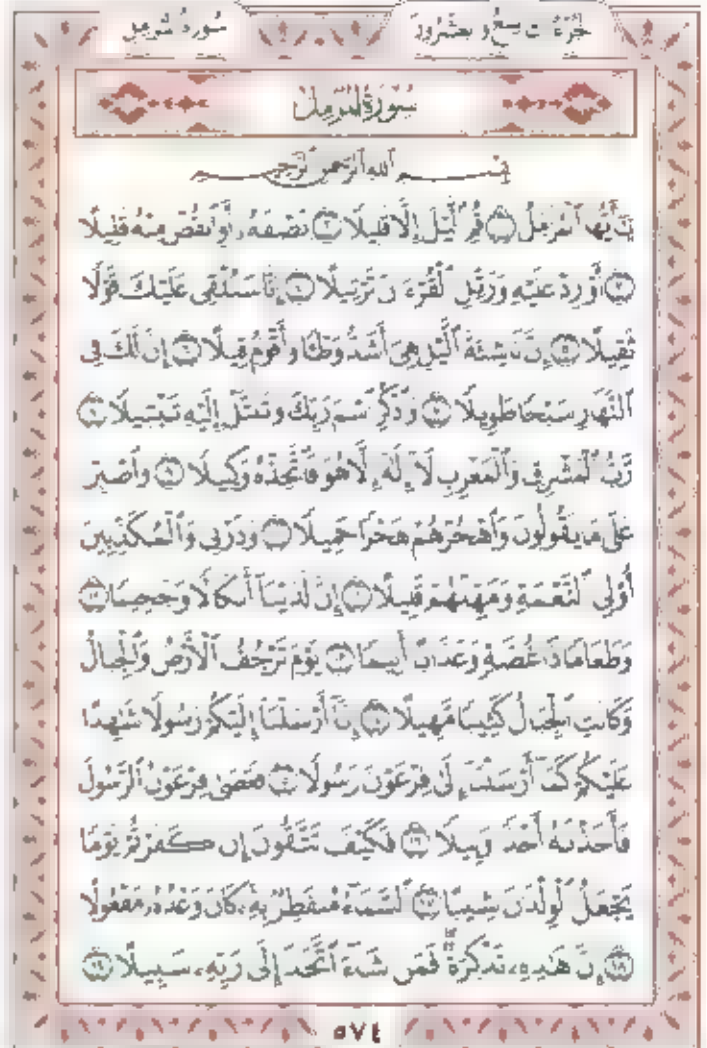 سُورَةُ المُزَّمِّل الجُزْءُ التَّاسِعُ وَالعِشْرُونَ
سُورَةُ المُزَّمِّل
بِسْمِ ٱللَّهِ ٱلرَّحْمَٰنِ ٱلرَّحِيمِ
يَٰٓأَيُّهَا ٱلْمُزَّمِّلُ ١ قُمِ ٱلَّيْلَ إِلَّا قَلِيلًا ٢ نِّصْفَهُۥٓ أَوِ ٱنقُصْ مِنْهُ قَلِيلًا
٣ أَوْ زِدْ عَلَيْهِ وَرَتِّلِ ٱلْقُرْءَانَ تَرْتِيلًا ٤ إِنَّا سَنُلْقِى عَلَيْكَ قَوْلًا
ثَقِيلًا ٥ إِنَّ نَاشِئَةَ ٱلَّيْلِ هِىَ أَشَدُّ وَطْـًٔا وَأَقْوَمُ قِيلًا ٦ إِنَّ لَكَ فِى
ٱلنَّهَارِ سَبْحًا طَوِيلًا ٧ وَٱذْكُرِ ٱسْمَ رَبِّكَ وَتَبَتَّلْ إِلَيْهِ تَبْتِيلًا ٨
رَّبُّ ٱلْمَشْرِقِ وَٱلْمَغْرِبِ لَآ إِلَٰهَ إِلَّا هُوَ فَٱتَّخِذْهُ وَكِيلًا ٩ وَٱصْبِرْ
عَلَىٰ مَا يَقُولُونَ وَٱهْجُرْهُمْ هَجْرًا جَمِيلًا ١٠ وَذَرْنِى وَٱلْمُكَذِّبِينَ
أُو۟لِى ٱلنَّعْمَةِ وَمَهِّلْهُمْ قَلِيلًا ١١ إِنَّ لَدَيْنَآ أَنكَالًا وَجَحِيمًا ١٢
وَطَعَامًا ذَا غُصَّةٍ وَعَذَابًا أَلِيمًا ١٣ يَوْمَ تَرْجُفُ ٱلْأَرْضُ وَٱلْجِبَالُ
وَكَانَتِ ٱلْجِبَالُ كَثِيبًا مَّهِيلًا ١٤ إِنَّآ أَرْسَلْنَآ إِلَيْكُمْ رَسُولًا شَٰهِدًا
عَلَيْكُمْ كَمَآ أَرْسَلْنَآ إِلَىٰ فِرْعَوْنَ رَسُولًا ١٥ فَعَصَىٰ فِرْعَوْنُ ٱلرَّسُولَ
فَأَخَذْنَٰهُ أَخْذًا وَبِيلًا ١٦ فَكَيْفَ تَتَّقُونَ إِن كَفَرْتُمْ يَوْمًا
يَجْعَلُ ٱلْوِلْدَٰنَ شِيبًا ١٧ ٱلسَّمَآءُ مُنفَطِرٌۢ بِهِۦ كَانَ وَعْدُهُۥ مَفْعُولًا
١٨ إِنَّ هَٰذِهِۦ تَذْكِرَةٌ فَمَن شَآءَ ٱتَّخَذَ إِلَىٰ رَبِّهِۦ سَبِيلًا ١٩
٥٧٤